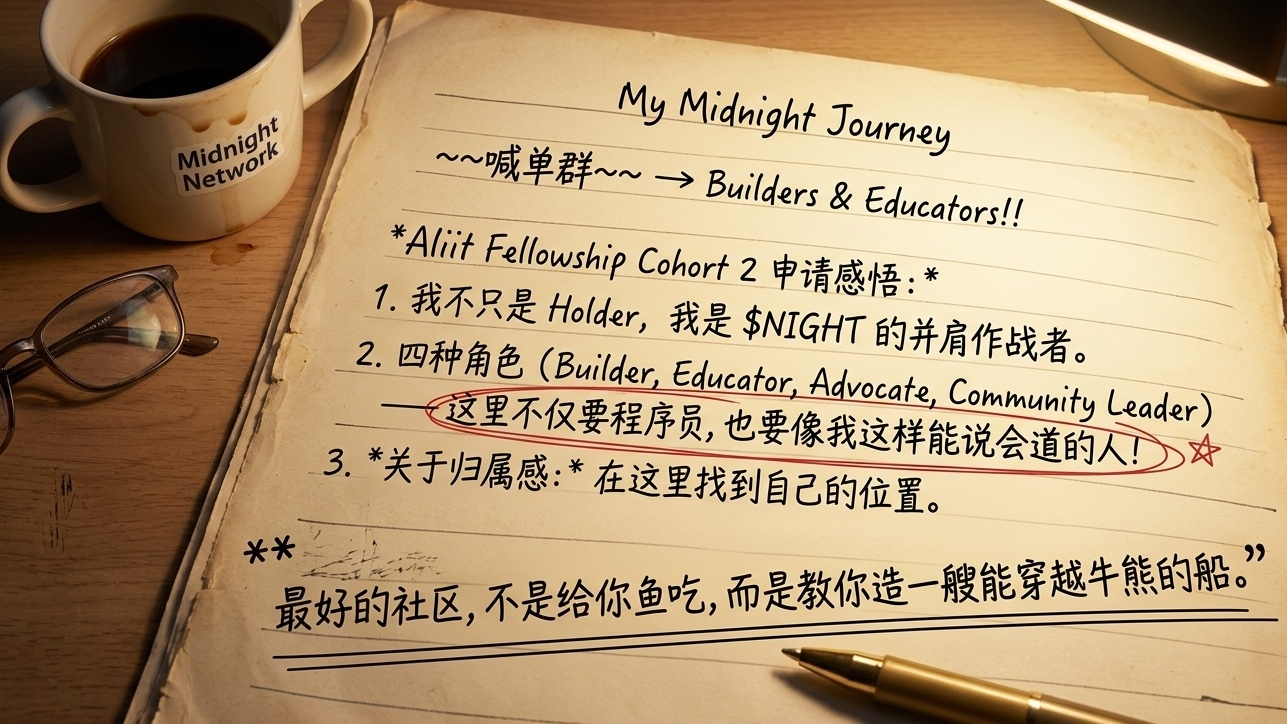 Midnight
Network
My Midnight Journey
~~喊单群~~ → Builders & Educators!!
*Aliit Fellowship Cohort 2 申请感悟:*
1. 我不只是 Holder, 我是 $NIGHT 的并肩作战者。
2. 四种角色 (Builder, Educator, Advocate, Community Leader)
— 这里不仅要程序员, 也要像我这样能说会道的人!
3. *关于归属感:* 在这里找到自己的位置。
**
最好的社区, 不是给你鱼吃, 而是教你造一艘能穿越牛熊的船。”